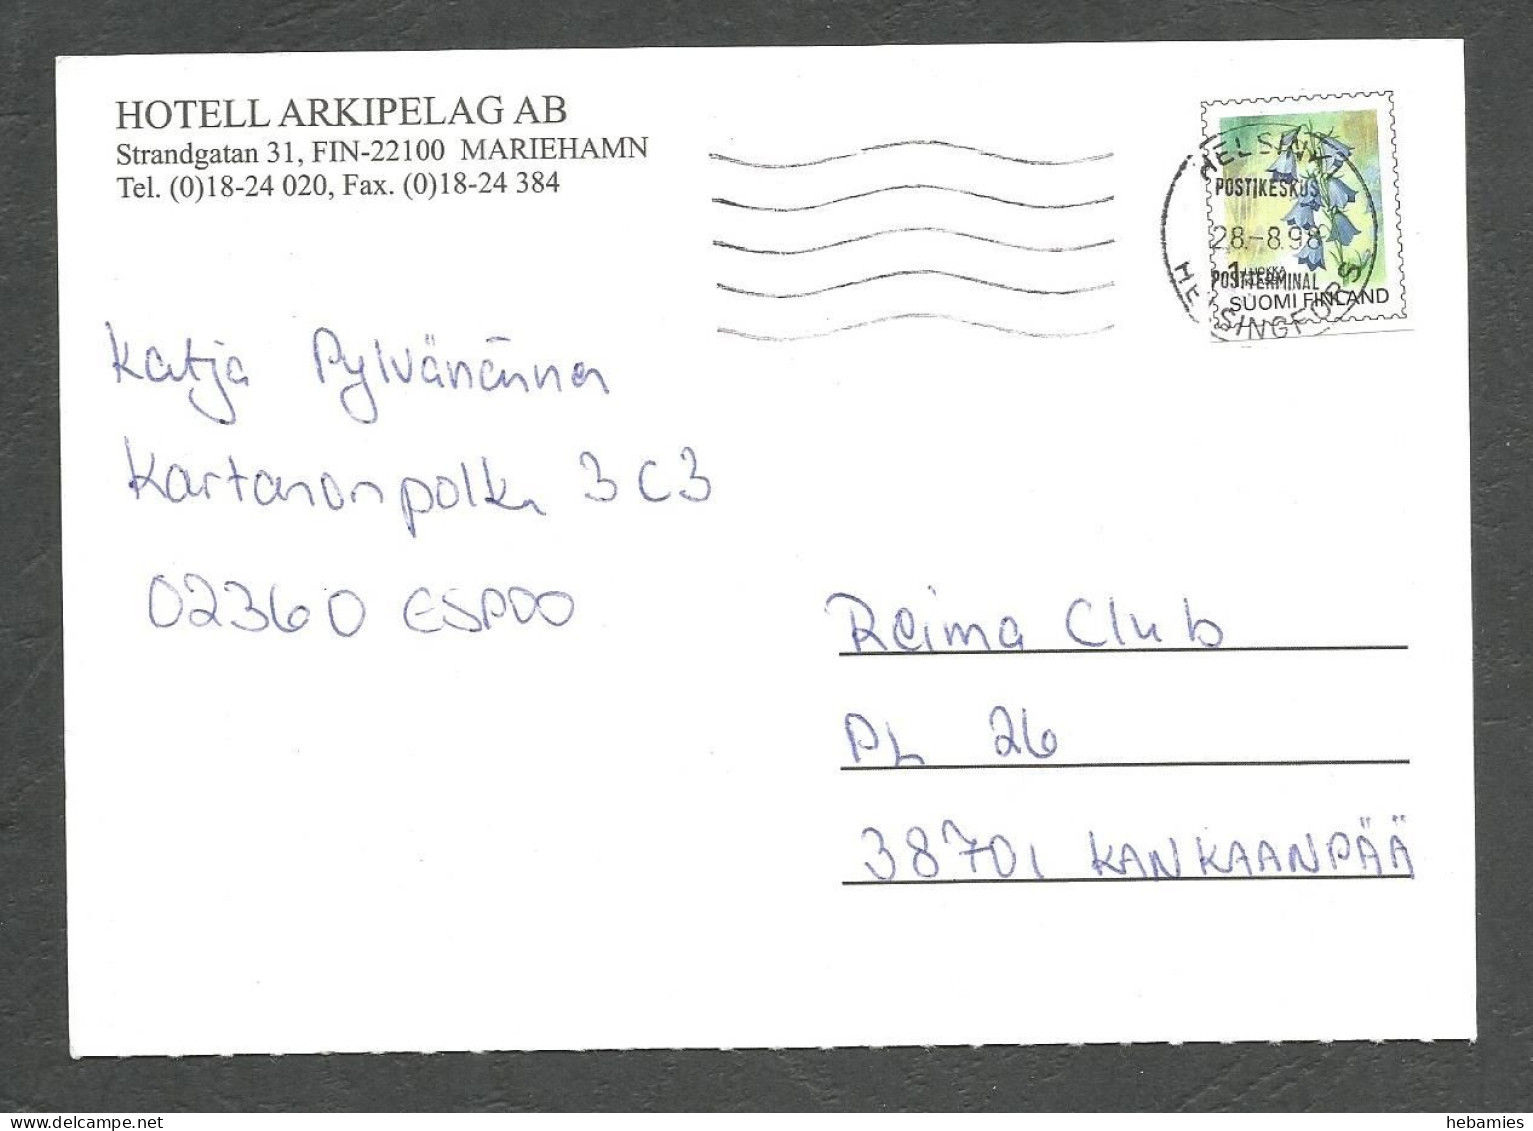 HOTELL ARKIPELAG AB
Strandgatan 31, FIN-22100 MARIEHAMN
Tel. (0)18-24 020, Fax. (0)18-24 384
HELSINKI
POSTIKESKUS
28.-8.98
1 LUOKKA
POSTTERMINAL
SUOMI FINLAND
HELSINGFORS
Katja Pylvänäinen
Kartanonpolku 3 C 3
02360 ESPOO
Reima Club
PL 26
38701 KANKAANPÄÄ
hebamies